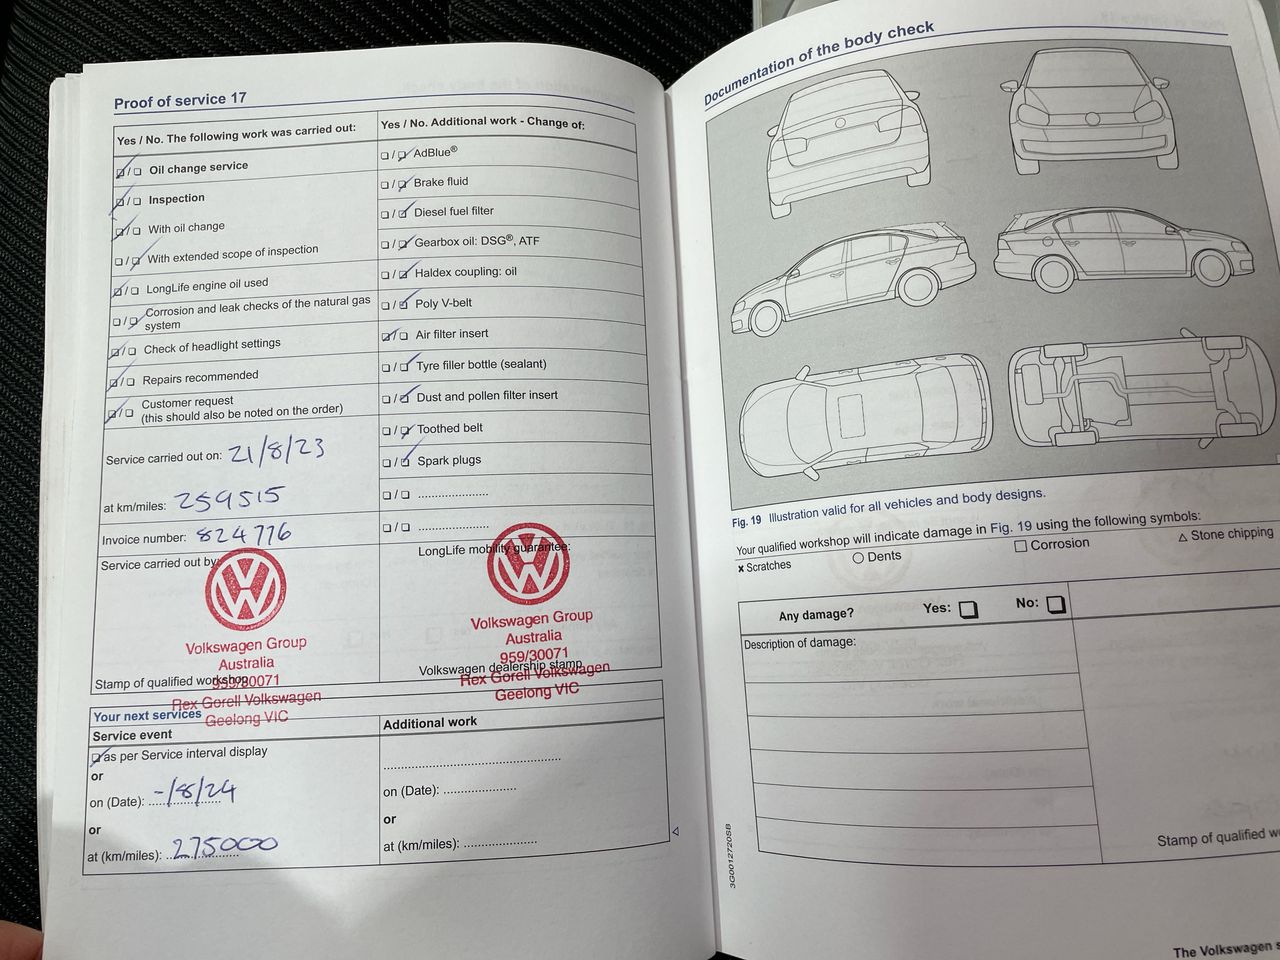 Proof of service 17
Yes / No. The following work was carried out:
Oil change service
Inspection
With oil change
With extended scope of inspection
LongLife engine oil used
Corrosion and leak checks of the natural gas
system
Check of headlight settings
Repairs recommended
Customer request
(this should also be noted on the order)
Service carried out on: 21/8/23
at km/miles: 259515
Invoice number: 824776
Service carried out by:
Volkswagen Group
Australia
959/30071
Stamp of qualified workshop
Rex Gorell Volkswagen
Geelong VIC
Yes / No. Additional work - Change of:
AdBlue®
Brake fluid
Diesel fuel filter
Gearbox oil: DSG®, ATF
Haldex coupling: oil
Poly V-belt
Air filter insert
Tyre filler bottle (sealant)
Dust and pollen filter insert
Toothed belt
Spark plugs
LongLife mobility guarantee:
Volkswagen Group
Australia
959/30071
Volkswagen dealership stamp
Rex Gorell Volkswagen
Geelong VIC
Your next services
Service event
as per Service interval display
or
on (Date): -/8/24
or
at (km/miles): 275000
Additional work
on (Date):
or
at (km/miles):
Documentation of the body check
Fig. 19 Illustration valid for all vehicles and body designs.
Your qualified workshop will indicate damage in Fig. 19 using the following symbols:
x Scratches
Dents
Corrosion
Stone chipping
Any damage? Yes: No:
Description of damage:
Stamp of qualified
3G0012720SB
The Volkswagen